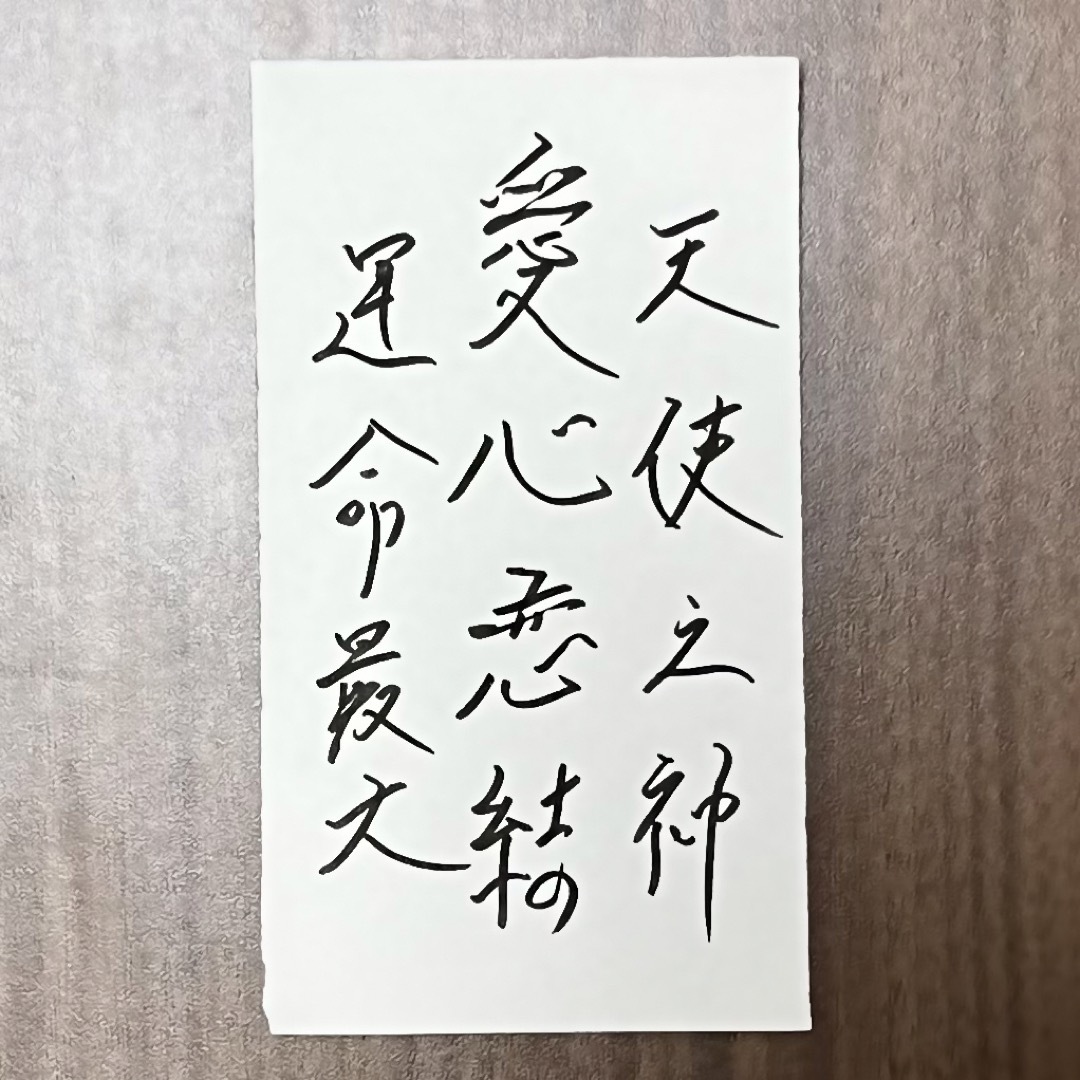 天使之神
愛心恋結
運命最大